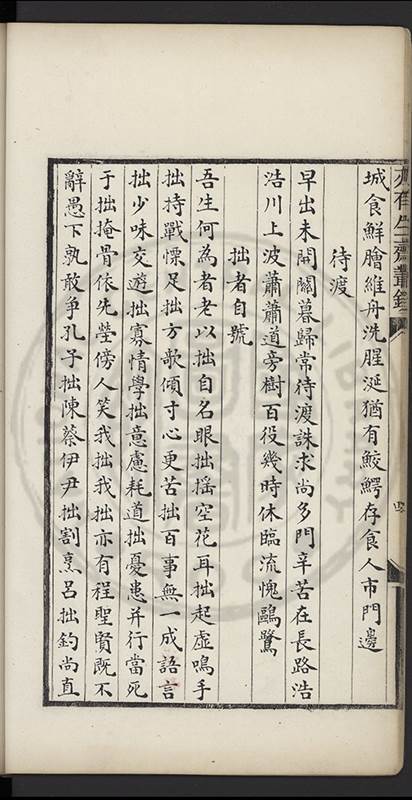 城食鮮膾維舟洗腥涎猶有鮫鱷存食人市門邊
待渡
早出未開關暮歸常待渡誅求尚多門辛苦在長路浩
浩川上波蕭蕭道旁樹百役幾時休臨流愧鷗鷺
拙者自號
吾生何為者老以拙自名眼拙搖空花耳拙起虛鳴手
拙持戰慄足拙方歌傾寸心更苦拙百事無一成語言
拙少味交遊拙寡情學拙意慮耗道拙憂患并行當死
于拙掩骨依先塋傍人笑我拙我拙亦有程聖賢既不
辭愚下孰敢爭孔子拙陳蔡伊尹拙割烹呂拙釣尚直
四